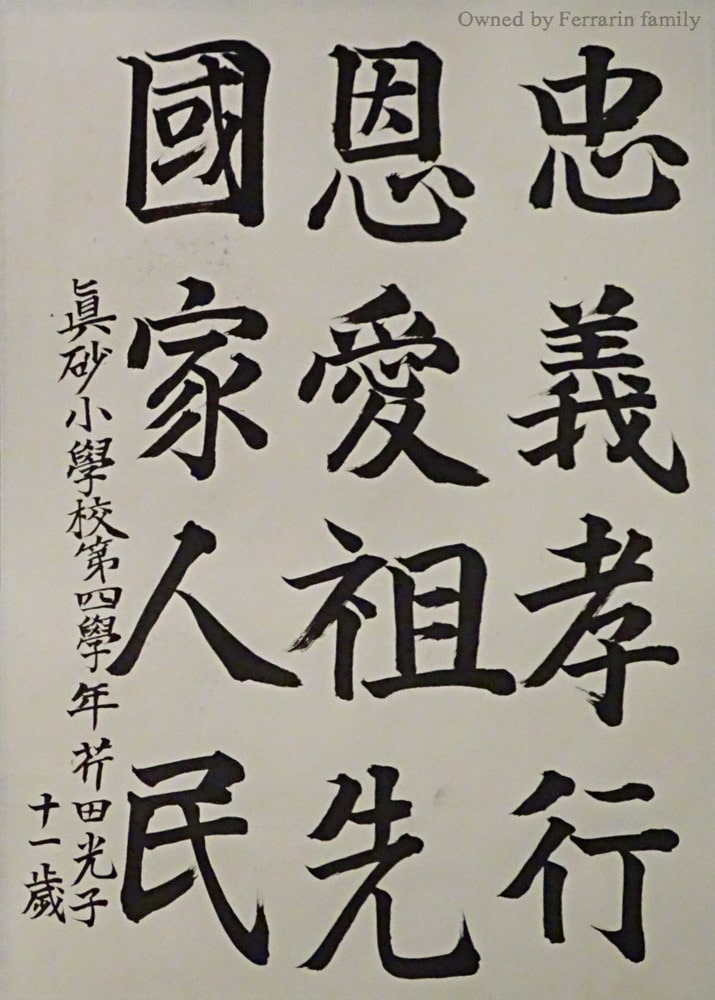 Owned by Ferrarin family
忠義孝行
恩愛祖先
國家人民
眞砂小學校第四學年芹田光子
十一歲